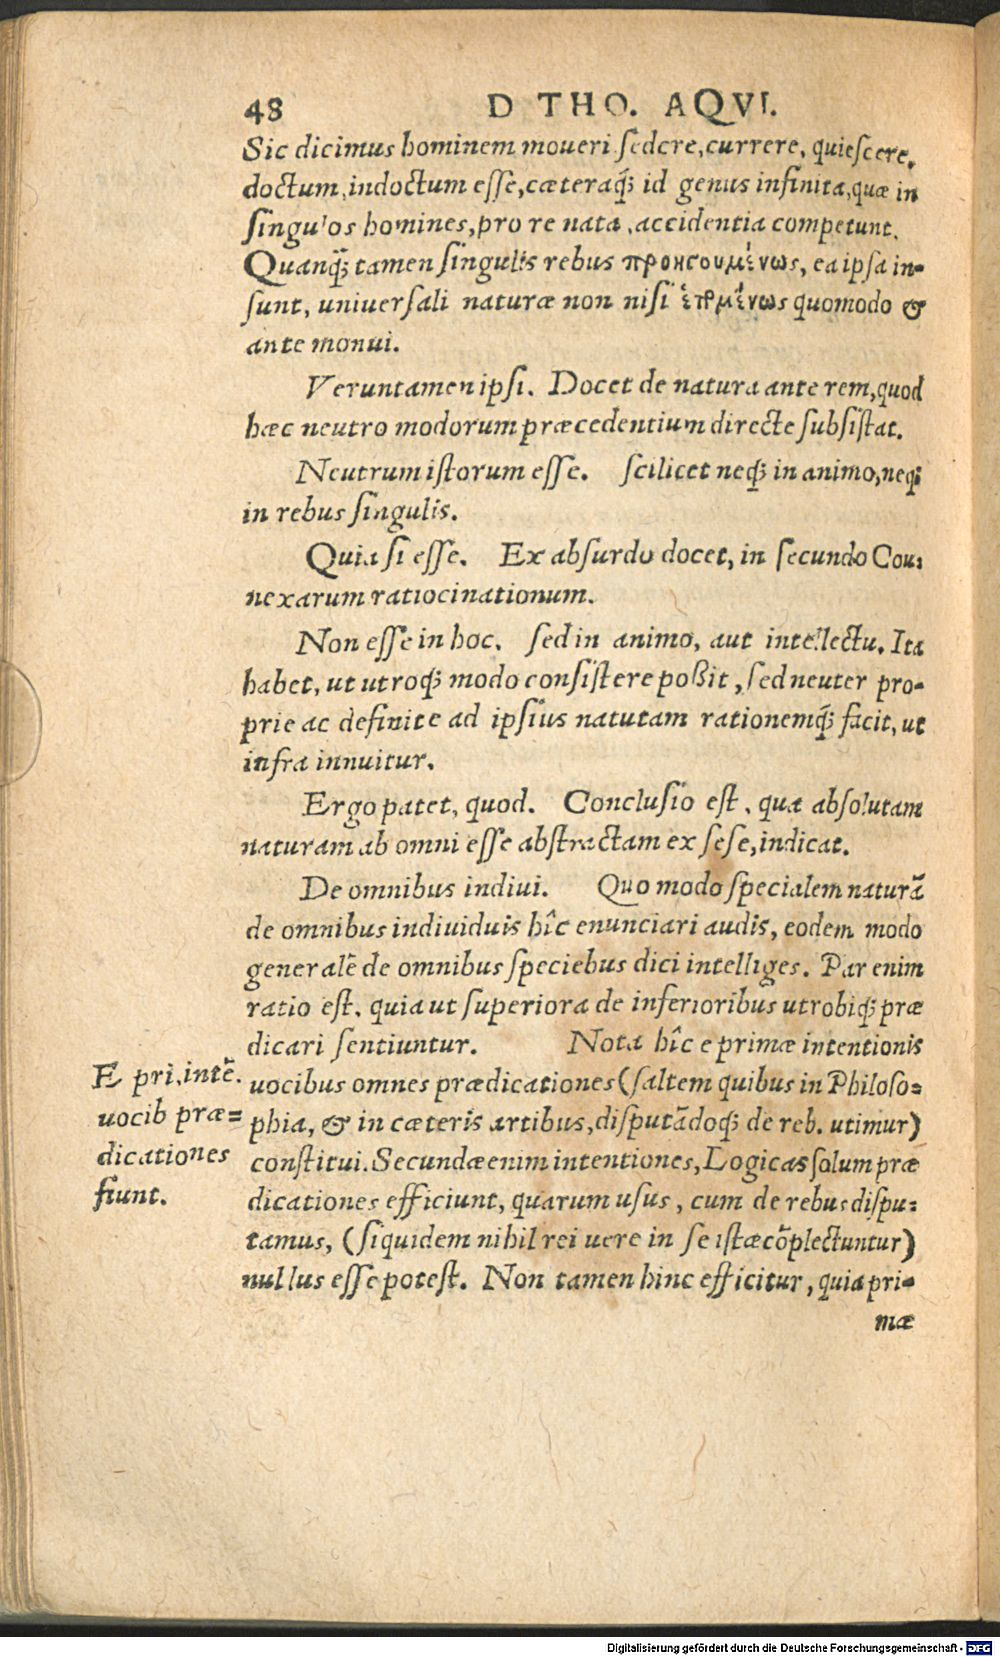 48 D THO. AQVI.
Sic dicimus hominem moueri sedere, currere, quiescere,
doctum, indoctum esse, cæteraq́; id genus infinita, quæ in
singulos homines, pro re nata, accidentia competunt.
Quanq́; tamen singulis rebus προηγουμένως, ea ipsa in-
sunt, uniuersali naturæ non nisi ἑπομένως quomodo &
ante monui.
Veruntamen ipsi. Docet de natura ante rem, quod
hæc neutro modorum præcedentium directe subsistat.
Neutrum istorum esse. scilicet neq́; in animo, neq;
in rebus singulis.
Quia si esse. Ex absurdo docet, in secundo Con-
nexarum ratiocinationum.
Non esse in hoc. sed in animo, aut intellectu. Ita
habet, ut utroq́; modo consistere poßit, sed neuter pro-
prie ac definite ad ipsius natutam rationemq́; facit, ut
infra innuitur.
Ergo patet, quod. Conclusio est, qua absolutam
naturam ab omni esse abstractam ex sese, indicat.
De omnibus indiui. Quo modo specialem naturā
de omnibus indiuiduis hîc enunciari audis, eodem modo
generalē de omnibus speciebus dici intelliges. Par enim
ratio est, quia ut superiora de inferioribus utrobiq́; præ
dicari sentiuntur. Nota hîc e primæ intentionis
uocibus omnes prædicationes (saltem quibus in Philoso-
phia, & in cæteris artibus, disputādoq́; de reb. utimur)
constitui. Secundæ enim intentiones, Logicas solum præ
dicationes efficiunt, quarum usus, cum de rebus dispu-
tamus, (siquidem nihil rei uere in se istæ cōplectuntur)
nullus esse potest. Non tamen hinc efficitur, quia pri-
mæ
E pri. intē.
uocib præ-
dicationes
fiunt.
Digitalisierung gefördert durch die Deutsche Forschungsgemeinschaft - DFG